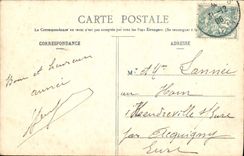 CARTE POSTALE
La Correspondance au recto n'est pas acceptée par tous les Pays Étrangers. (Se renseigner à la Poste)
CORRESPONDANCE
ADRESSE
Bonne et heureuse
année
M. Lannée
au Ham
Heudreville s/ Eure
par Acquigny
Eure